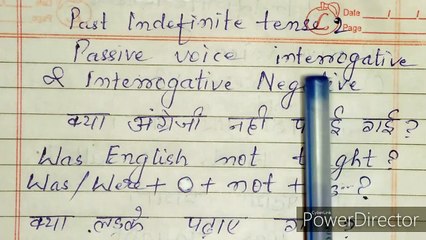 Past Indefinite tense
Date
Page
Passive voice interrogative
& Interrogative Negative
क्या अंग्रेजी नही गई ?
Was English not ?
Was/Were + O + not + ?
क्या लड़के पढ़ाए
PowerDirector